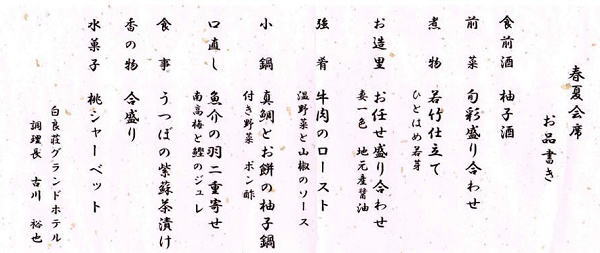 春夏会席
お品書き
食前酒 柚子酒
前菜 旬彩盛り合わせ
煮物 若竹仕立て
ひとはめ若芽
お造里 お任せ盛り合わせ
妻一色 地元産醤油
強肴 牛肉のロースト
温野菜と山椒のソース
小鍋 真鯛とお餅の柚子鍋
付き野菜 ポン酢
口直し 魚介の羽二重寄せ
南高梅と鰹のジュレ
食事 うつぼの紫蘇茶漬け
香の物 合盛り
水菓子 桃シャーベット
白良荘グランドホテル
調理長 古川 裕也